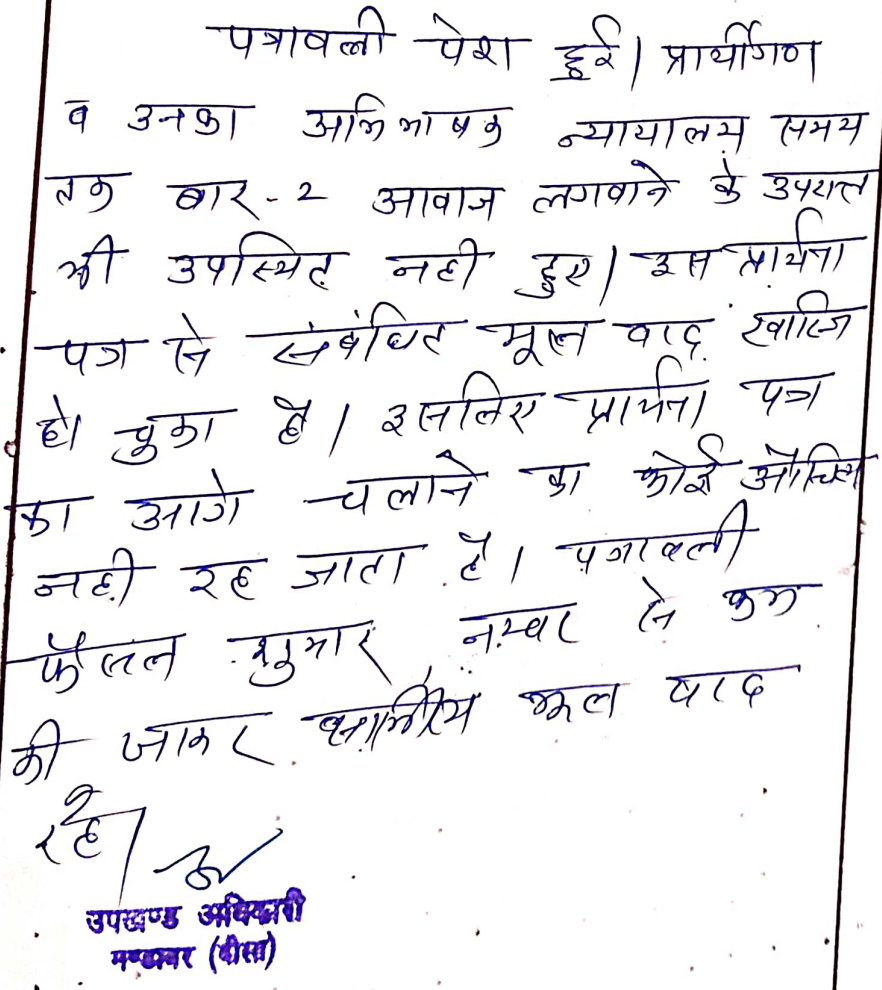 पत्रावली पेश हुई। प्रार्थीगण
व उनका अभिभाषक न्यायालय समय
तक बार-2 आवाज लगवाने के उपरान्त
भी उपस्थित नही हुए। इस प्रार्थना
पत्र से संबंधित मूल वाद खारिज
हो चुका है। इसलिए प्रार्थना पत्र
का आगे चलाने का कोई औचित्य
नही रह जाता है। पत्रावली
फैसल शुमार नम्बर से कम
की जाकर शामिल मूल वाद
रहे।
उपखण्ड अधिकारी
मण्डावर (दौसा)